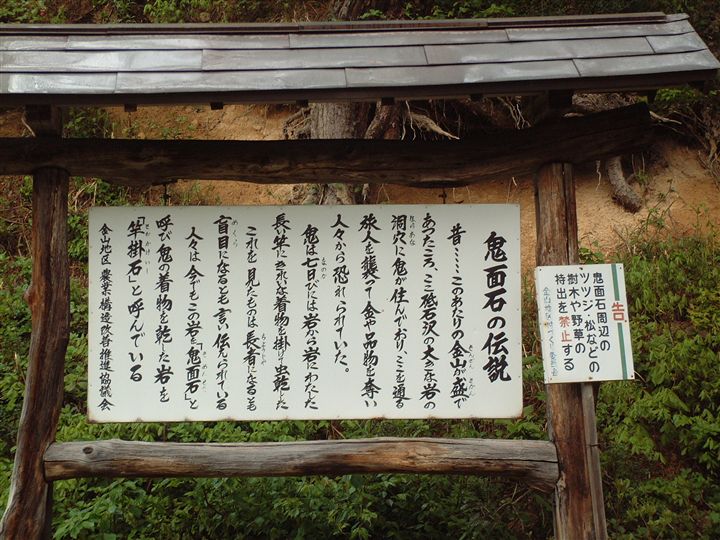 鬼面石の伝説
昔‥‥このあたりの金山が盛で
あったころ、ここ砥石沢の大きな岩の
洞穴に鬼が住んでおり、ここを通る
旅人を襲って金や品物を奪い
人々から恐れられていた。
鬼は七日びには岩から岩にわたした
長竿にきれいな着物を掛け虫乾した
これを見たものは長者になるとも
盲目になるとも言い伝えられている
人々は今でもこの岩を「鬼面石」と
呼び鬼の着物を乾した岩を
「竿掛石」と呼んでいる
金山地区農業構造改善推進協議会
告
鬼面石周辺の
ツツジ・松などの
樹木や野草の
持出を禁止する